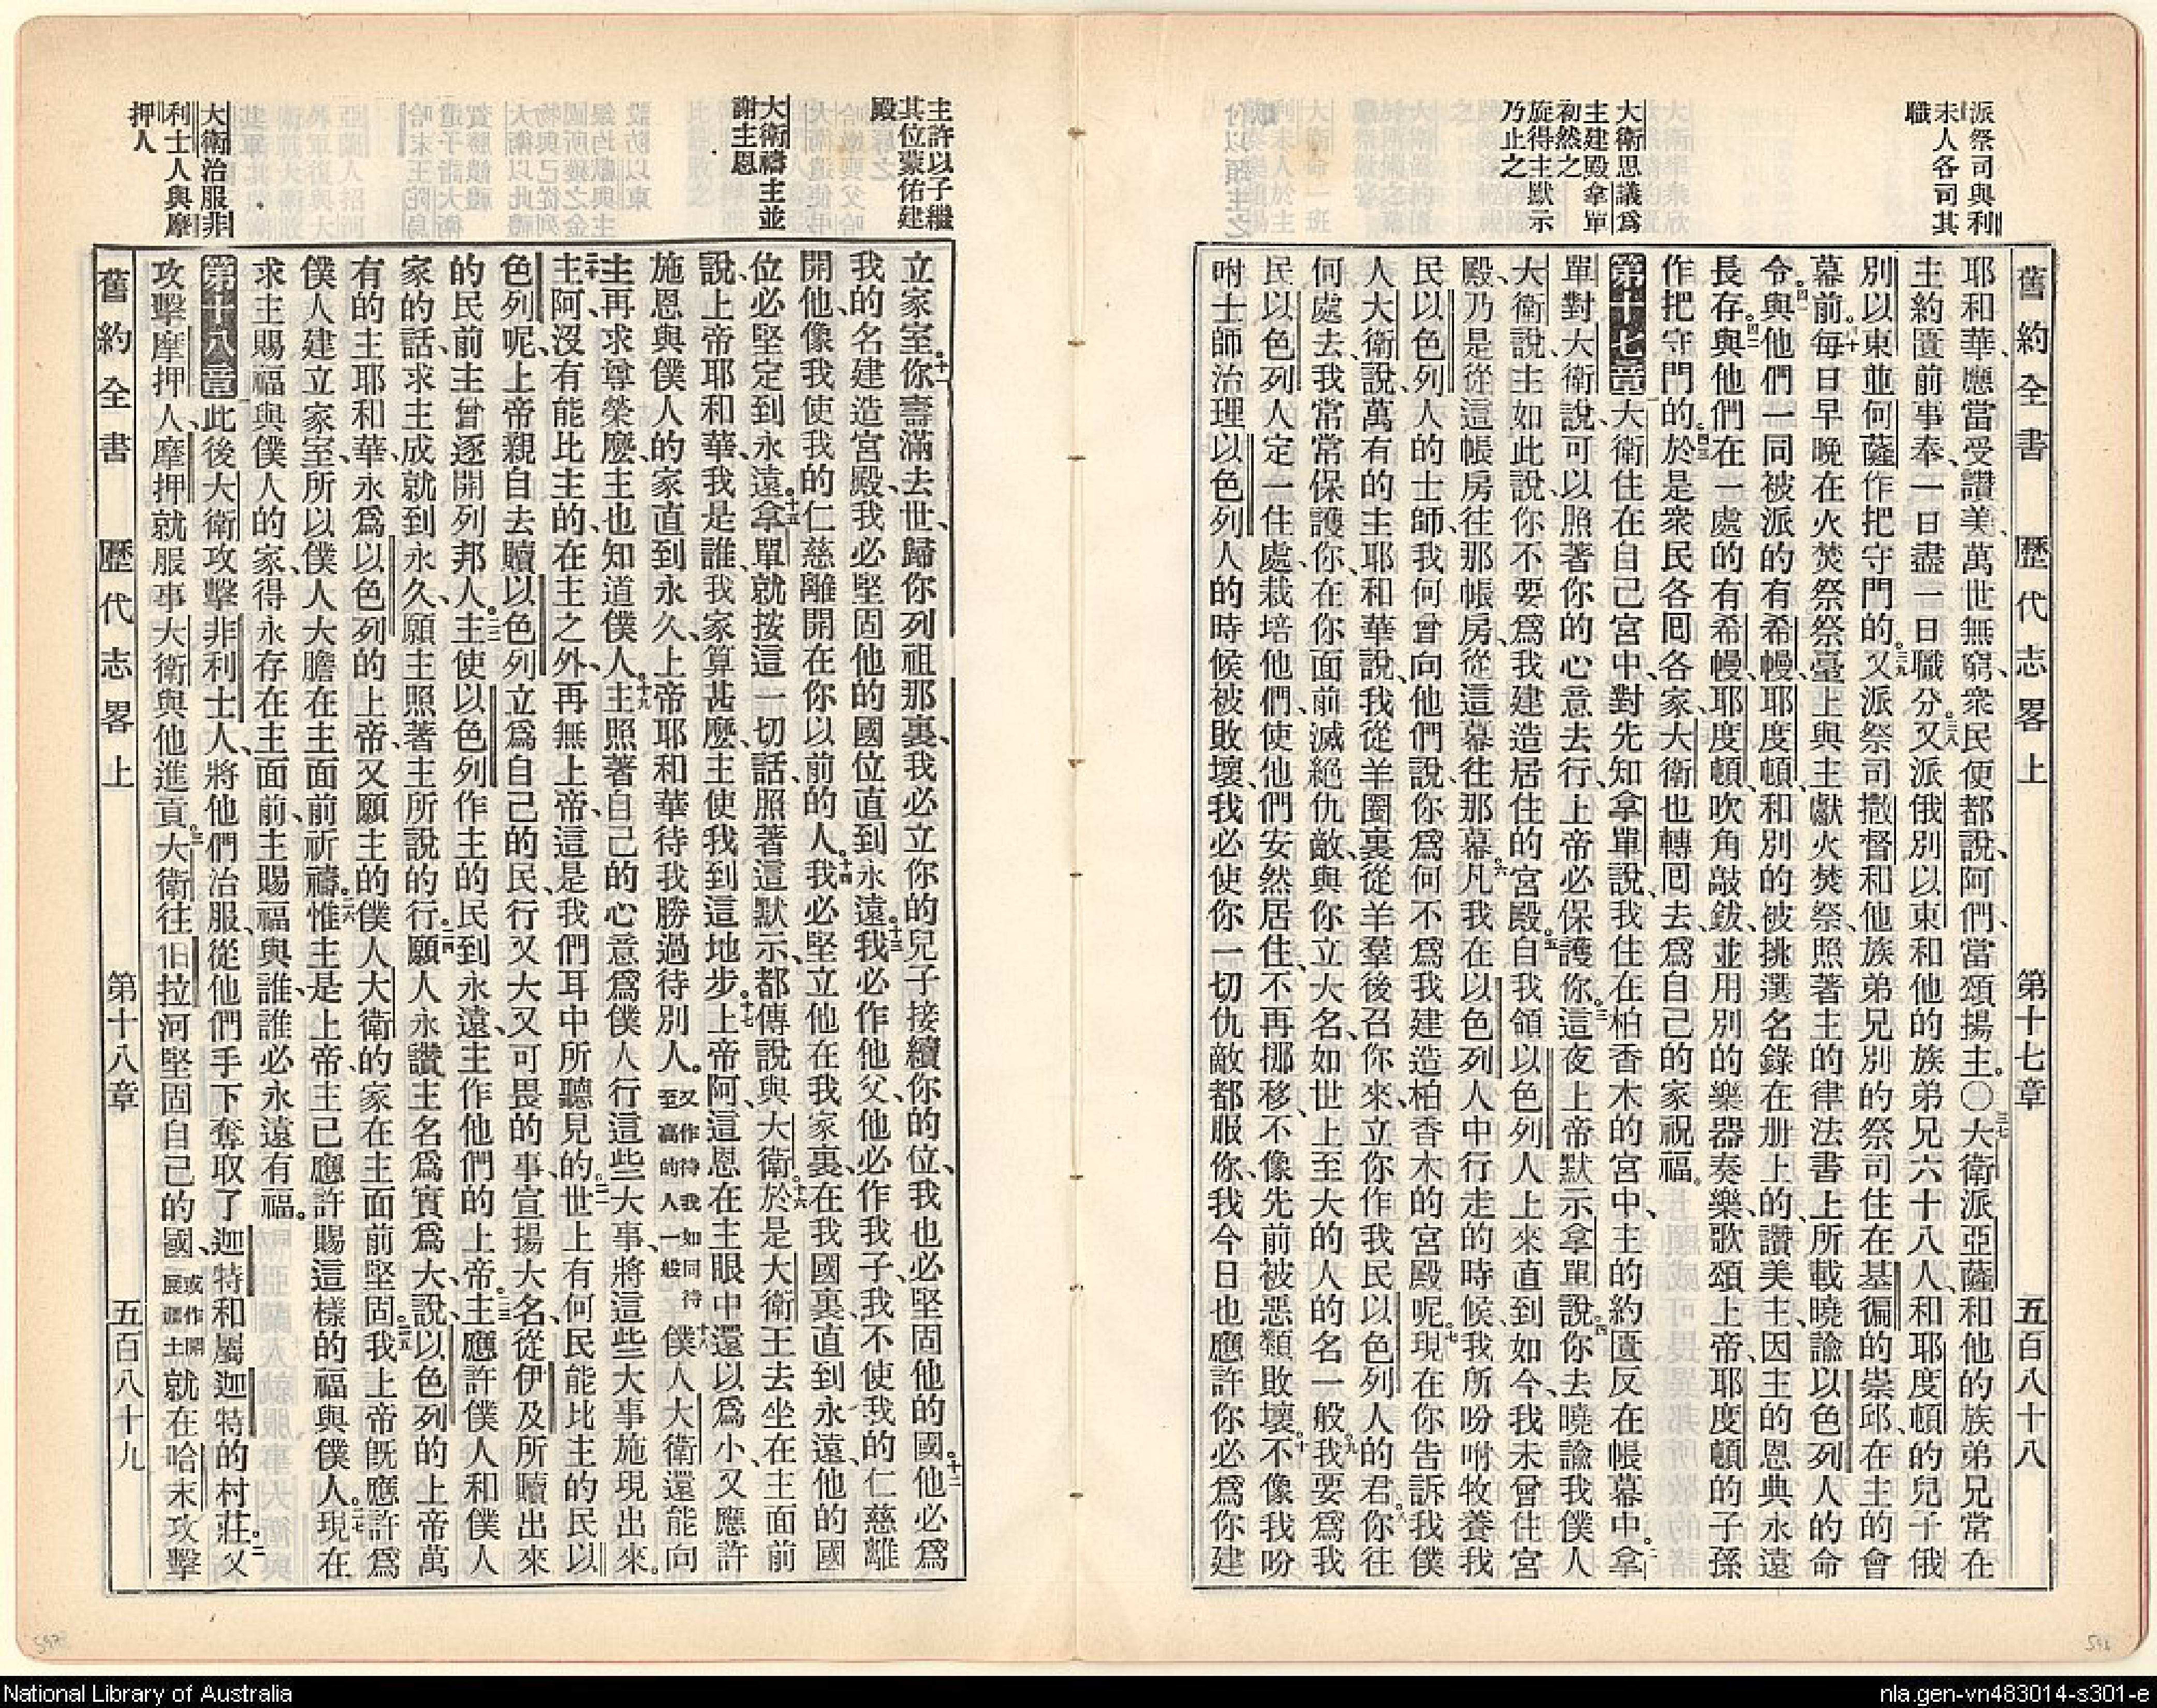 派祭司與利
未人各司其
職
大衛思議爲
主建殿拿單
初然之
旋得主默示
乃止之
舊約全書 歷代志畧上 第十七章 五百八十八
耶和華、應當受讚美、萬世無窮、衆民便都說、阿們、當頌揚主。○三七大衛派亞薩和他的族弟兄常在
主約匱前事奉、一日盡一日職分。三八又派俄別以東和他的族弟兄六十八人、和耶度頓的兒子俄
別以東並何薩作把守門的。三九又派祭司撒督和他族弟兄別的祭司住在基徧的崇邱、在主的會
幕前。四十每日早晚在火焚祭祭臺上與主獻火焚祭、照著主的律法書上所載曉諭以色列人的命
令。四一與他們一同被派的有希幔、耶度頓、和別的被挑選名錄在册上的、讚美主、因主的恩典永遠
長存。四二與他們在一處的有希幔、耶度頓吹角敲鈸、並用別的樂器奏樂、歌頌上帝、耶度頓的子孫
作把守門的。四三於是衆民各囘各家、大衛也轉囘去、爲自己的家祝福。
第十七章一大衛住在自己宮中、對先知拿單說、我住在柏香木的宮中、主的約匱反在帳幕中。二拿
單對大衛說、可以照著你的心意去行、上帝必保護你。三這夜上帝默示拿單說。四你去曉諭我僕人
大衛說、主如此說、你不要爲我建造居住的宮殿。五自我領以色列人上來直到如今、我未曾住宮
殿、乃是從這帳房往那帳房、從這幕往那幕。六凡我在以色列人中行走的時候、我所吩咐牧養我
民以色列人的士師、我何曾向他們說、你爲何不爲我建造柏香木的宮殿呢。七現在你告訴我僕
人大衛說、萬有的主耶和華說、我從羊圈裏從羊羣後召你來、立你作我民以色列人的君。八你往
何處去、我常常保護你、在你面前滅絕仇敵、與你立大名、如世上至大的人的名一般。九我要爲我
民以色列人定一住處、栽培他們、使他們安然居住、不再挪移、不像先前被惡類敗壞。十不像我吩
咐士師治理以色列人的時候被敗壞、我必使你一切仇敵都服你、我今日也應許你必爲你建
主許以子繼
其位蒙佑建
殿
大衛禱主並
謝主恩
大衛治服非
利士人與摩
押人
立家室。十一你壽滿去世、歸你列祖那裏、我必立你的兒子接續你的位、我也必堅固他的國。十二他必爲
我的名建造宮殿、我必堅固他的國位直到永遠。十三我必作他父、他必作我子、我不使我的仁慈離
開他、像我使我的仁慈離開在你以前的人。十四我必堅立他在我家裏、在我國裏、直到永遠、他的國
位必堅定到永遠。十五拿單就按這一切話、照著這默示、都傳說與大衛。十六於是大衛王去坐在主面前
說、上帝耶和華、我是誰、我家算甚麽、主使我到這地步。十七上帝阿、這恩在主眼中還以爲小、又應許
施恩與僕人的家直到永久、上帝耶和華待我勝過待別人。又作待我如同待至高的人一般十八僕人大衛還能向
主再求尊榮麽、主也知道僕人。十九主照著自己的心意爲僕人行這些大事、將這些大事施現出來。
二十主阿、沒有能比主的、在主之外、再無上帝、這是我們耳中所聽見的。二一世上有何民能比主的民以
色列呢、上帝親自去贖以色列立爲自己的民、行又大又可畏的事、宣揚大名、從伊及所贖出來
的民前、主曾逐開列邦人。二二主使以色列作主的民到永遠、主作他們的上帝。二三主應許僕人和僕人
家的話、求主成就到永久、願主照著主所說的行。二四願人永讚主名爲實爲大、說、以色列的上帝萬
有的主耶和華、永爲以色列的上帝、又願主的僕人大衛的家在主面前堅固。二五我上帝旣應許爲
僕人建立家室、所以僕人大膽在主面前祈禱。二六惟主是上帝、主已應許賜這樣的福與僕人。二七現在
求主賜福與僕人的家、得永存在主面前、主賜福與誰、誰必永遠有福。
第十八章一此後大衛攻擊非利士人、將他們治服、從他們手下奪取了迦特和屬迦特的村莊。二又
攻擊摩押人、摩押就服事大衛、與他進貢。三大衛往伯拉河堅固自己的國、或作開展疆土就在哈末攻擊
舊約全書 歷代志畧上 第十八章 五百八十九
597
596
National Library of Australia
nla.gen-vn483014-s301-e